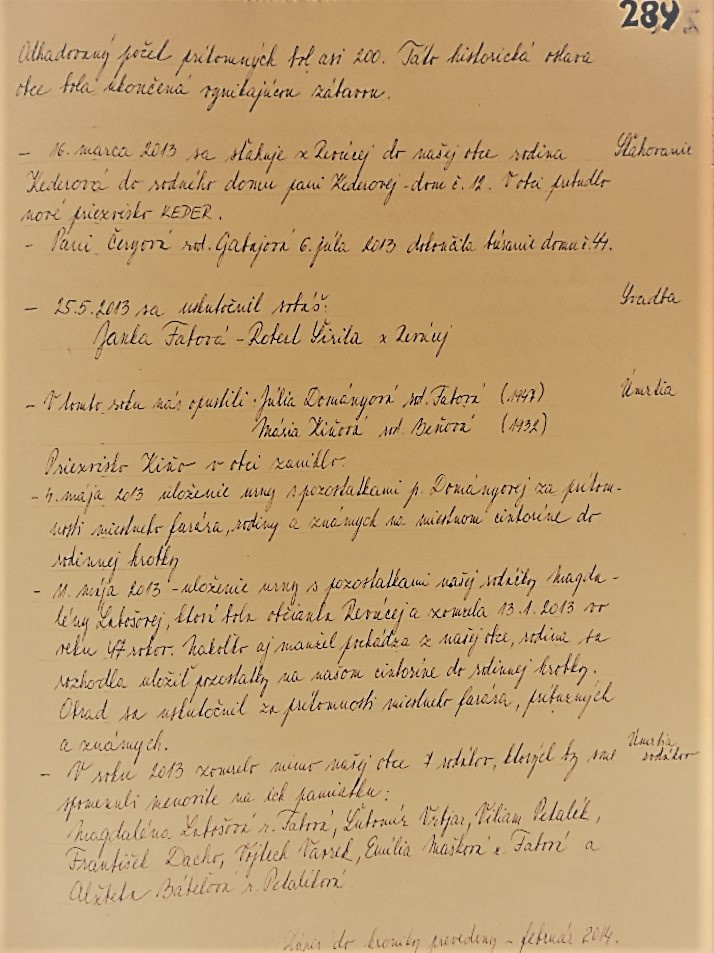 289
Odhadovaný počet prítomných bol asi 200. Táto historická oslava
obce bola ukončená vynikajúcou zábavou.
- 16. marca 2013 sa sťahuje z Revúcej do našej obce rodina Sťahovanie
Kederová do rodného domu pani Kederovej - dom č. 12. V obci pribudlo
nové priezvisko KEDER.
- Pani Čergová rod. Gabajová 6. júla 2013 dokončila búranie domu č. 44.
- 25.5.2013 sa uskutočnil sobáš: Svadba
Janka Fatová - Robert Širila z Revúcej
- V tomto roku nás opustili: Júlia Dományová rod. Fatová (1948) Úmrtia
Mária Kiňová rod. Beňová (1932)
Priezvisko Kiňo v obci zaniklo.
- 4. mája 2013 uloženie urny s pozostatkami p. Dományovej za prítom-
nosti miestneho farára, rodiny a známych na miestnom cintoríne do
rodinnej hrobky
- 11. mája 2013 - uloženie urny s pozostatkami našej rodáčky Magda-
lény Lubošovej, ktorá bola občianka Revúcej a zomrela 13.1.2013 vo
veku 47 rokov. Nakoľko aj manžel pochádza z našej obce, rodina sa
rozhodla uložiť pozostatky na našom cintoríne do rodinnej hrobky.
Obrad sa uskutočnil za prítomnosti miestneho farára, príbuzných
a známych.
- V roku 2013 zomrelo mimo našej obce 7 rodákov, ktorých by sme Úmrtia rodákov
spomenuli menovite na ich pamiatku:
Magdaléna Lubošová r. Fatová, Ľubomír Vrbjar, Viliam Petalík,
František Dacho, Vojtech Varsek, Emília Mašková r. Fatová a
Alžbeta Bátelová r. Petalíková
Zápis do kroniky prevedený - február 2014.